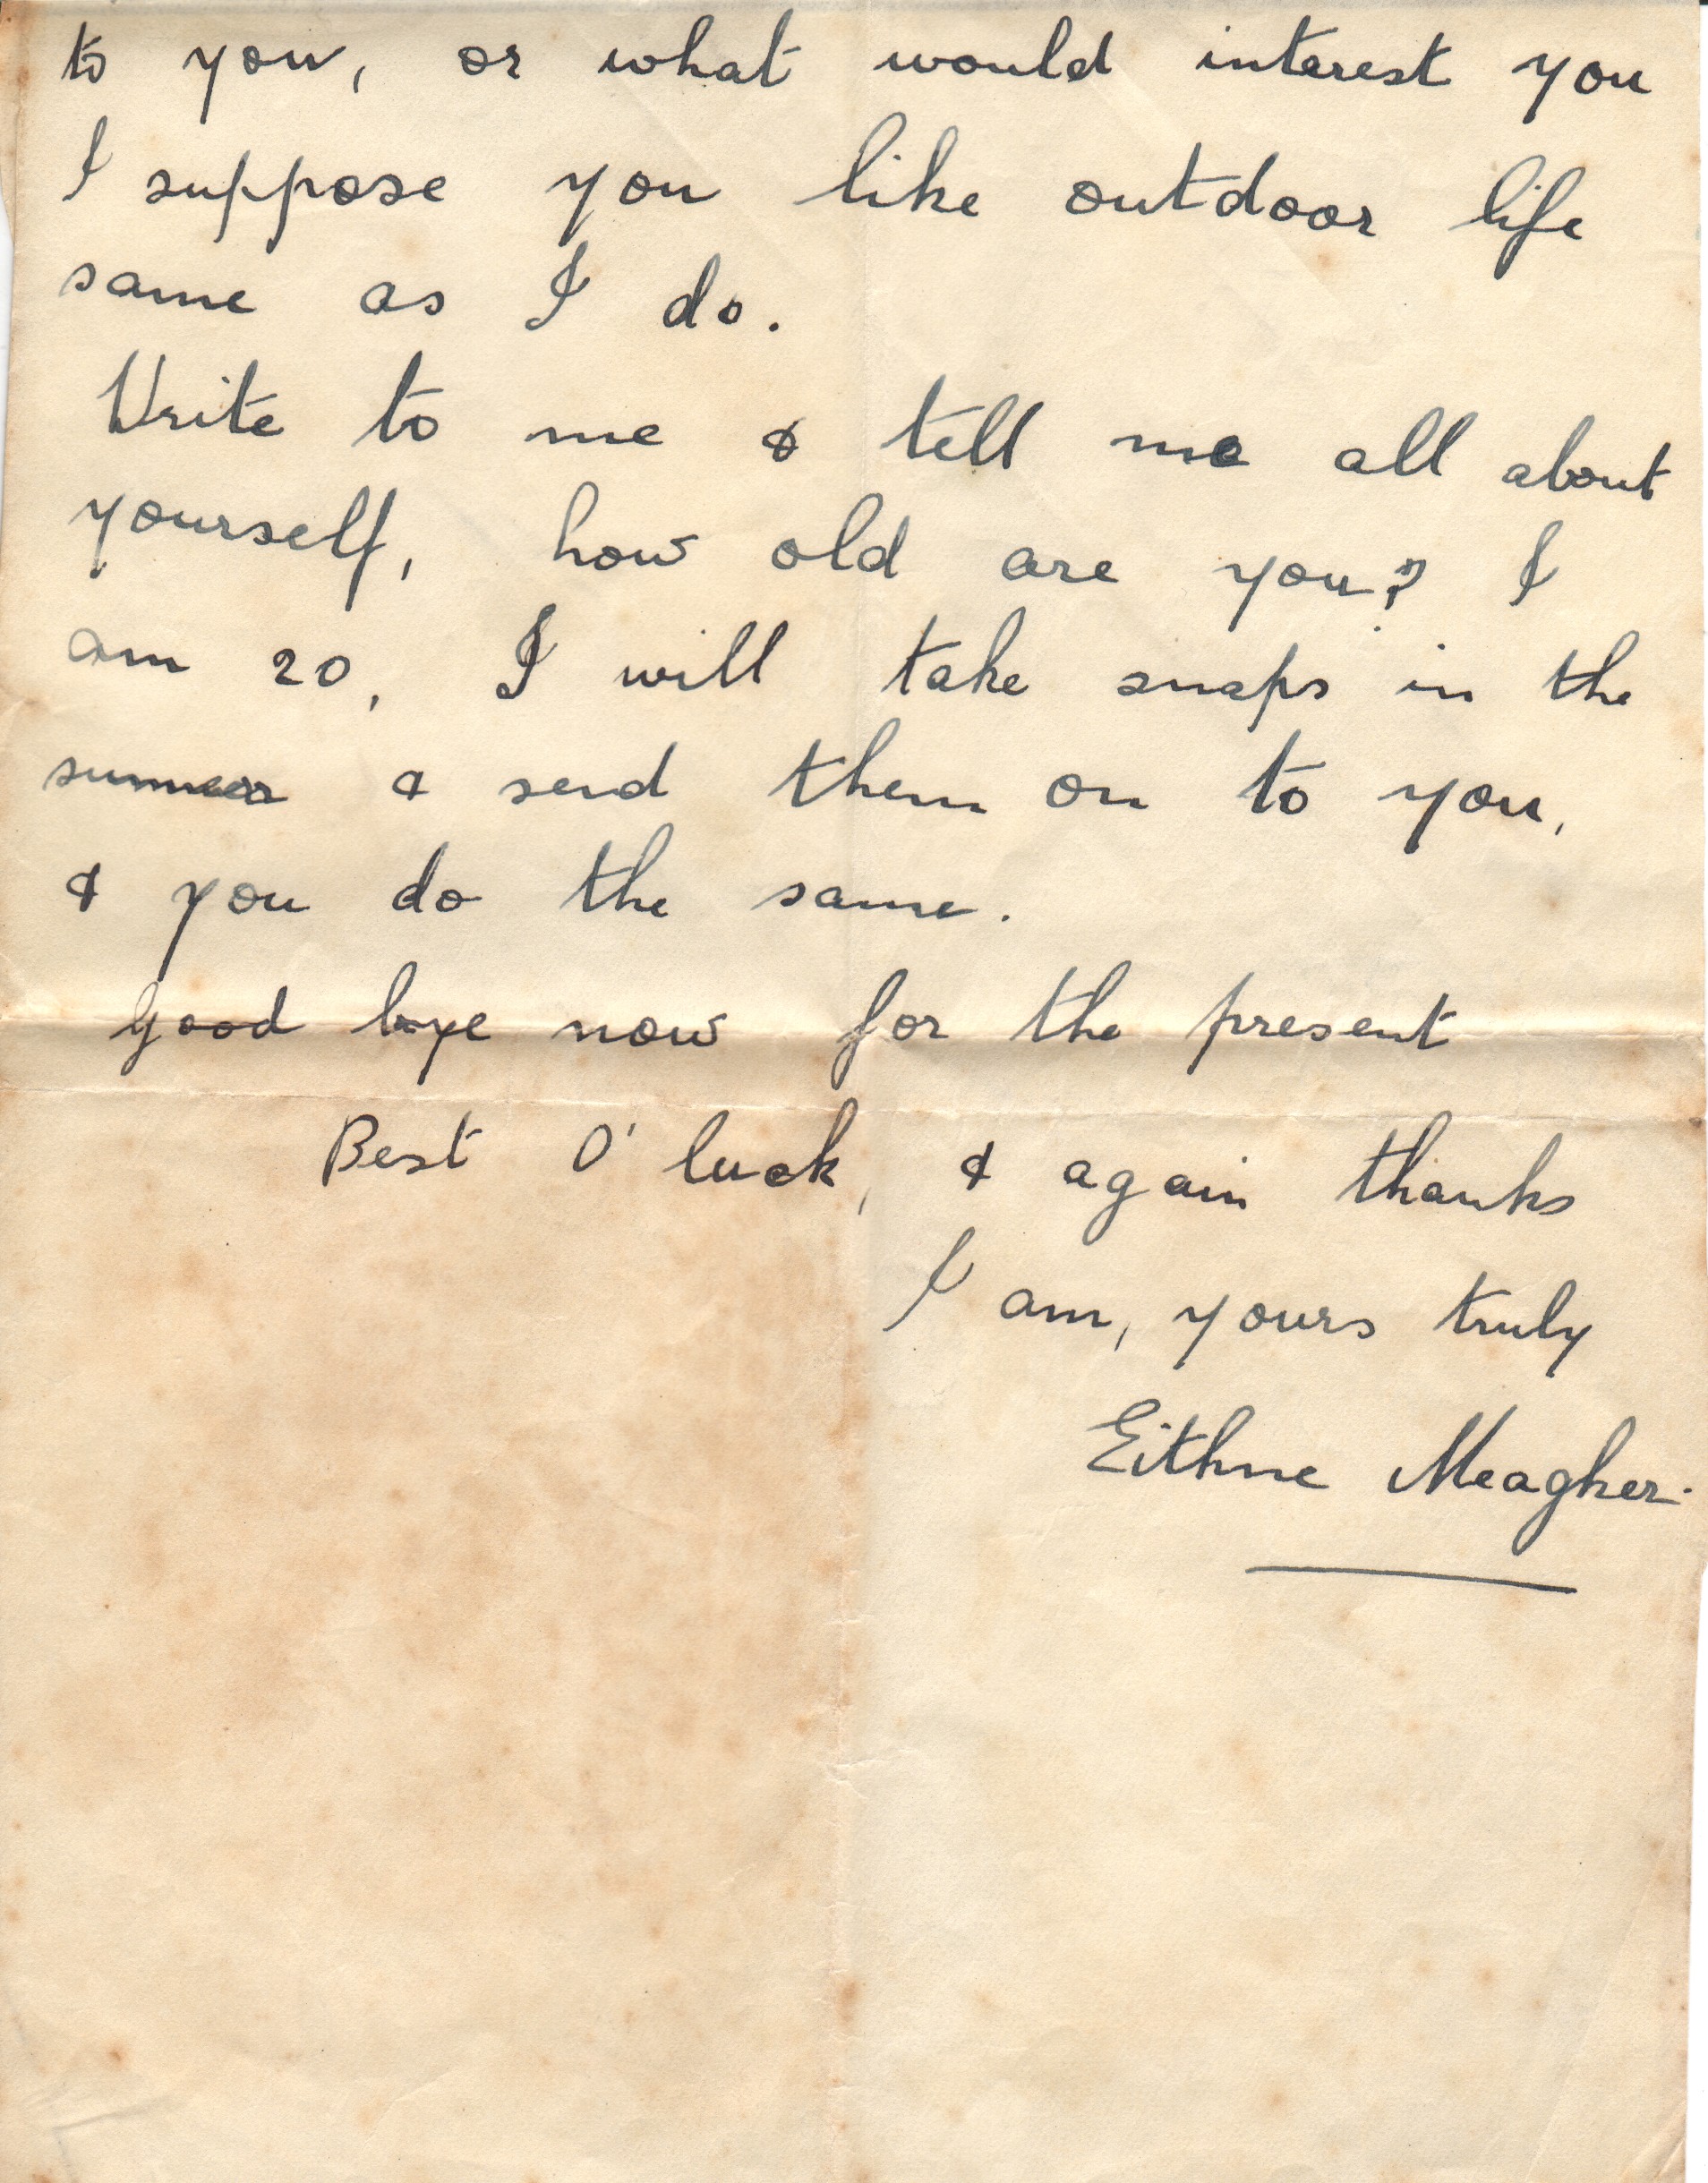 to you, or what would interest you
I suppose you like outdoor life
same as I do.
Write to me & tell me all about
yourself, how old are you? I
am 20, I will take snaps in the
summer & send them on to you,
& you do the same.
Good bye now for the present
Best O' luck, & again thanks
I am, yours truly
Eithne Meagher.